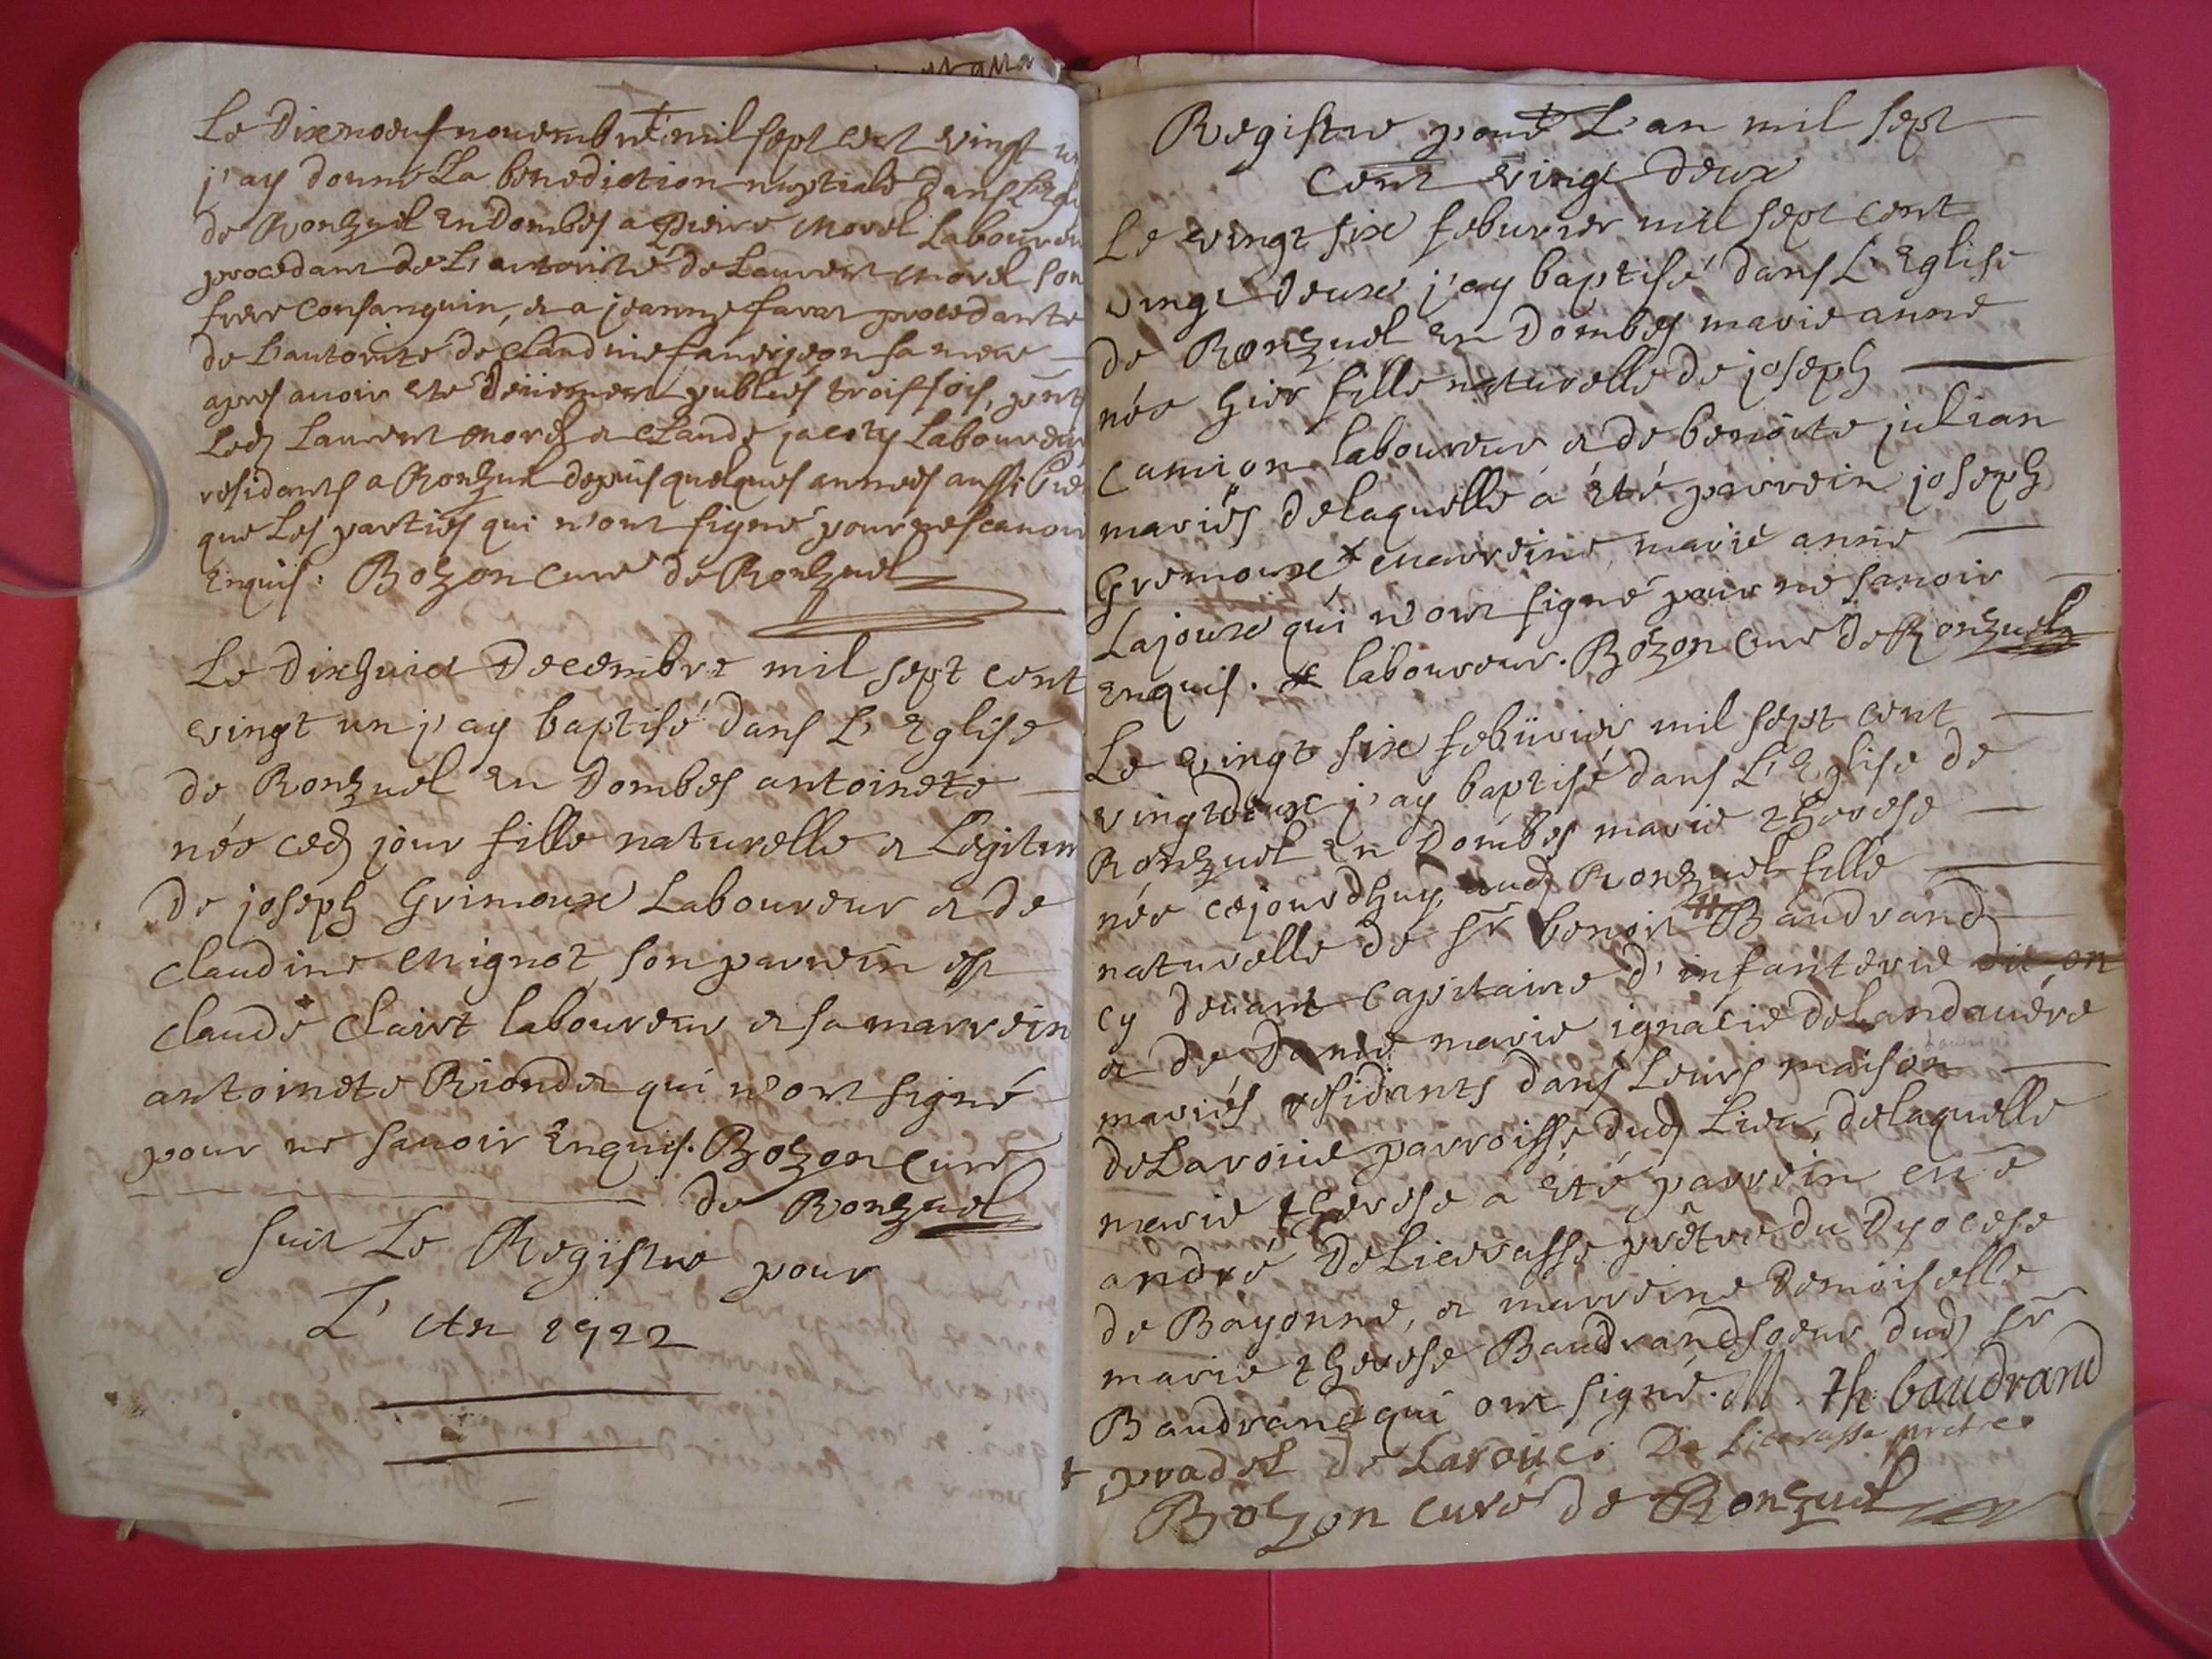 Le Dixnoeuf novembre mil sept cent vingt un
j'ay donné La benediction nuptiale dans L'Egli
de Ronzuel En Dombes a Pierre Morel Laboureu
procedant de L'autorité de Laurent Morel son
frere consanguin, et a jeanne favar procedante
de L'autorité de Claudine sa mere
apres avoir eté düement publiés trois fois, pnts
Led Laurent Morel et Claude jacoty Laboureur
residants a Ronzuel depuis quelques années aussi bien
que Les parties qui n'ont signé pour ne scavoir
Enquis. Bozon Curé de Ronzuel
Le Dixhuict Decembre mil sept cent
vingt un j'ay baptisé dans L'Eglise
de Ronzuel En Dombes antoinete
née ced jour fille naturelle et Legitim
de joseph Grimoux Laboureur et de
claudine Mignot, son parrein est
claude clairt laboureur et sa marrein
antoinete Riondet qui n'ont signé
pour ne savoir Enquis. Bozon Curé
de Ronzuel
suit Le Registre pour
L'An 1722
Registre pour L'an mil sept
cent vingt deux
Le vingt six feburier mil sept cent
vingt deux j'ay baptisé dans L'Eglise
de Ronzuel En Dombes marie anne
née hier fille naturelle de joseph
Camion laboureur et de benoite julian
mariés delaquelle a été parrein joseph
Gremoux * marreine marie anne
Lajoux qui n'ont signé pour ne savoir
Enquis. * laboureur. Bozon Curé de Ronzuel
Le vingt six febürier mil sept cent
vingtdeux j'ay baptisé dans L'Eglise de
Ronzuel En Dombes marie therese
née cejourdhuy, aud Ronzuel fille
naturelle de sr benoit Baudrand
cy devant capitaine d'infanterie
et de Dame marie ignacie deLandavére
mariés residants dans Leurs maison
deLaroüe parroisse dud Lieu, delaquelle
marie therese a été parrein
andré DeLicerasse prêtre du Dyocese
de Bayonne, et marreine Demoiselle
marie therese Baudrand soeur dud sr
Baudrand qui ont signé. M. th. baudrand
+ pradel de Laroüe. De Licerasse pretre
Bozon curé de Ronzuel